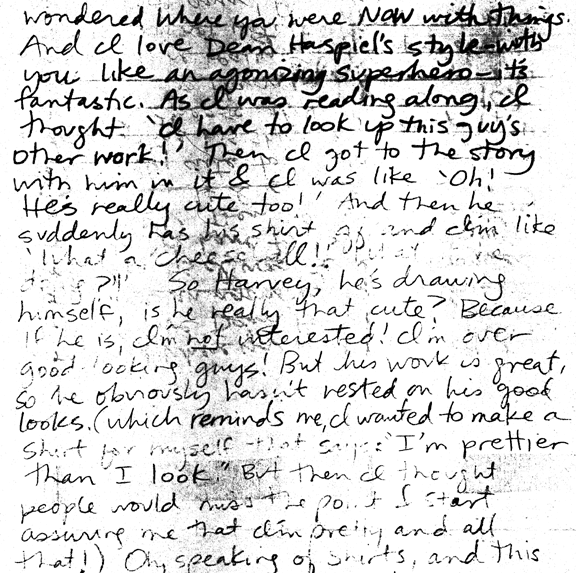 wondered where ya were now with things.
And I love Dean Haspiel's style—with
you like an agonizing superhero—it's
fantastic. As I was reading along, I
thought 'I have to look up this guy's
other work!' Then I got to the story
with him in it & I was like 'Oh!
He's really cute too!' And then he
suddenly has his shirt and I'm like
'What a cheese ll!
?!!' So Harvey, he's drawing
himself, is he really that cute? Because
If he is, I'm not interested! I'm over
good looking guys! But his work is great,
so he obviously hasn't rested on his good
looks. (which reminds me, I wanted to make a
shirt for myself that says "I'm prettier
than I look." But then I thought
people would miss the point & start
assuring me that I'm pretty and all
that!) Oh, speaking of shirts, and this